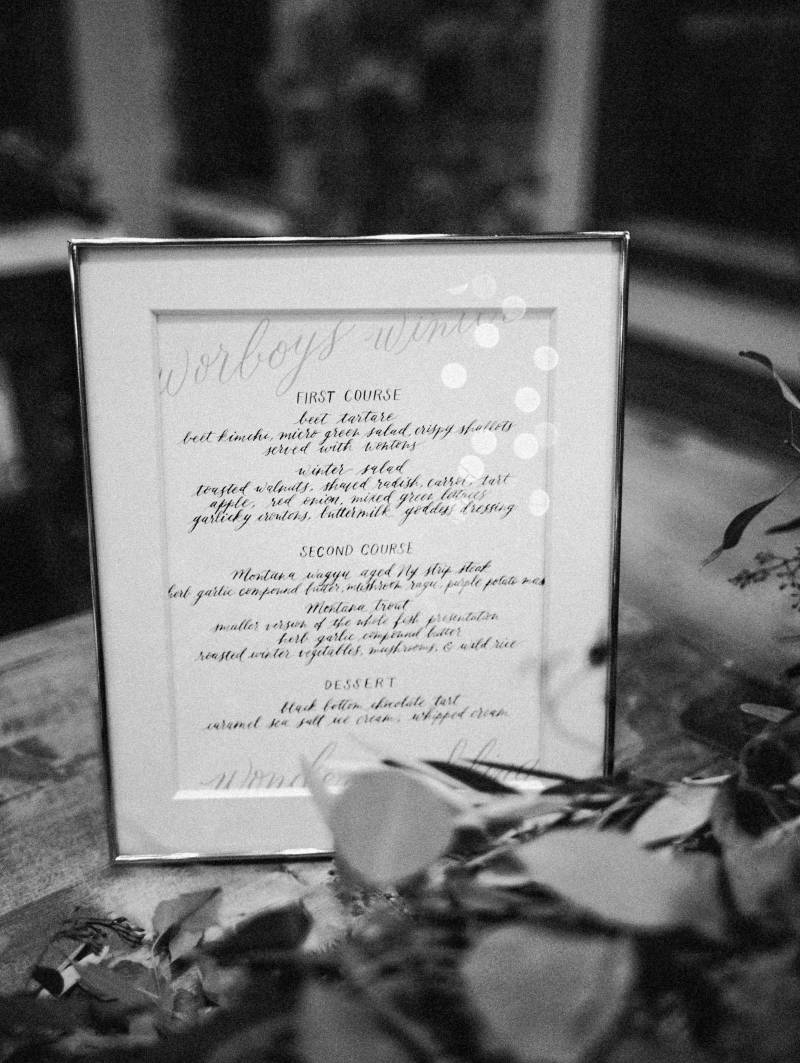 worboys winter
FIRST COURSE
beet tartare
beet kimchi, micro green salad, crispy shallots
served with wontons
winter salad
toasted walnuts, shaved radish, carrot, tart
apple, red onion, mixed green lettuces
garlicky croutons, buttermilk goddess dressing
SECOND COURSE
Montana wagyu aged Ny strip steak
herb garlic compound butter, mushroom ragu, purple potato
Montana trout
smaller version of the whole fish presentation
herb garlic compound butter
roasted winter vegetables, mushrooms, & wild rice
DESSERT
black bottom chocolate tart
caramel sea salt ice cream, whipped cream